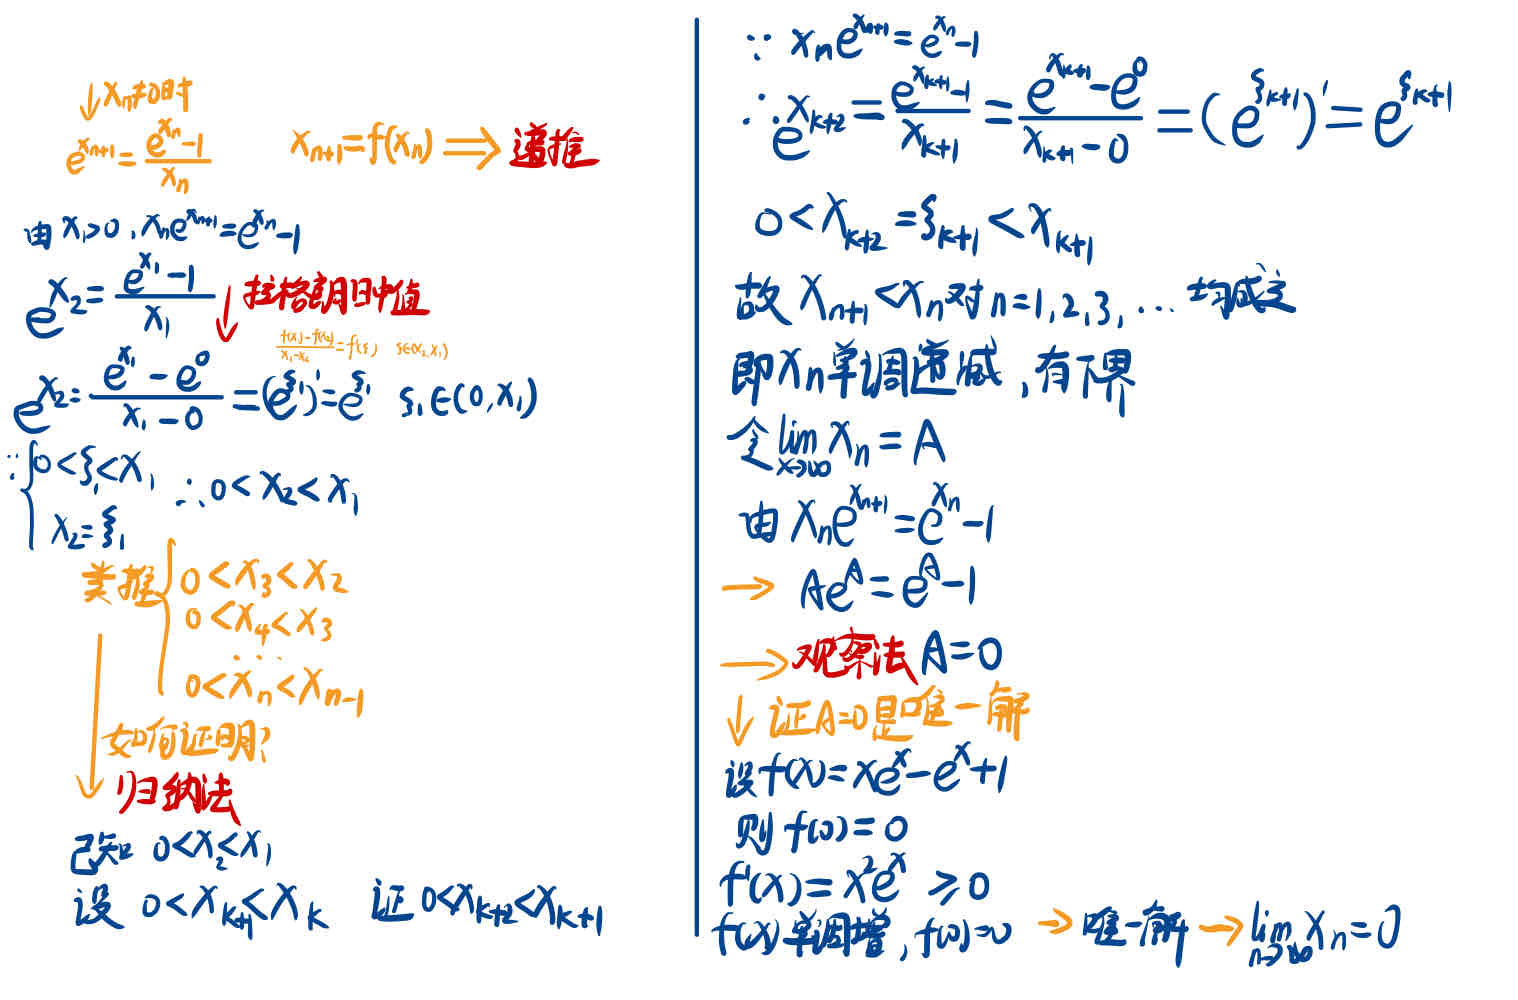 ↓xₙ≠0时
e^{xₙ₊₁} = (e^{xₙ}-1)/xₙ    xₙ₊₁=f(xₙ) ⟹ 递推
由 x₁>0, xₙe^{xₙ₊₁}=e^{xₙ}-1
e^{x₂} = (e^{x₁}-1)/x₁ ↓ 拉格朗日中值
(f(x₁)-f(x₂))/(x₁-x₂) = f'(ξ) ξ∈(x₂,x₁)
e^{x₂} = (e^{x₁}-e⁰)/(x₁-0) = (e^{ξ₁})' = e^{ξ₁}  ξ₁∈(0,x₁)
∵ { 0<ξ₁<x₁  ∴ 0<x₂<x₁
x₂=ξ₁
类推 { 0<x₃<x₂
0<x₄<x₃
...
0<xₙ<xₙ₋₁
如何证明?
归纳法
已知 0<x₂<x₁
设 0<x_{k+1}<x_k  证 0<x_{k+2}<x_{k+1}
∵ xₙe^{xₙ₊₁}=e^{xₙ}-1
∴ e^{x_{k+2}} = (e^{x_{k+1}}-1)/x_{k+1} = (e^{x_{k+1}}-e⁰)/(x_{k+1}-0) = (e^{ξ_{k+1}})' = e^{ξ_{k+1}}
0<x_{k+2}=ξ_{k+1}<x_{k+1}
故 xₙ₊₁<xₙ对n=1,2,3,… 均成立
即xₙ单调递减,有下界
令 lim_{x→∞} xₙ=A
由 xₙe^{xₙ₊₁}=e^{xₙ}-1
→ Ae^A=e^A-1
→ 观察法 A=0
↓ 证A=0是唯一解
设f(x)=xe^x-e^x+1
则 f(0)=0
f'(x)=x²e^x ≥0
f(x)单调增, f(0)=0 → 唯一解 → lim_{n→∞} xₙ=0